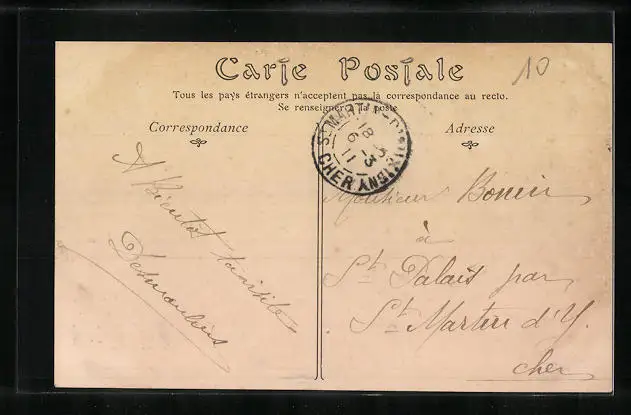 Carte Postale
10
Tous les pays étrangers n'acceptent pas la correspondance au recto.
Se renseigner à la poste
Correspondance
Adresse
St MARTIN-D'AUXIGNY
18 -3
6 11
CHER
A Bientôt
Desmoulins
Monsieur Bonin
à
St. Palais par
St. Martin d'Y.
Cher